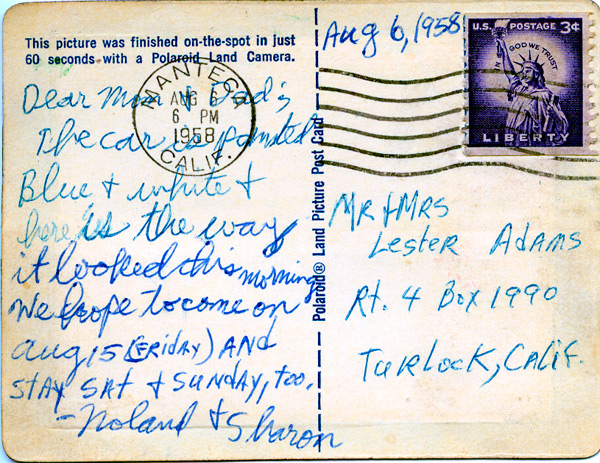 This picture was finished on-the-spot in just
60 seconds with a Polaroid Land Camera.
Aug 6, 1958
U.S. POSTAGE 3¢
IN GOD WE TRUST
LIBERTY
MANTECA
AUG
6 PM
1958
CALIF.
Dear Mom & Dad's
The car is painted
Blue & white &
here is the way
it looked this morning
We hope to come on
Aug 15 (FRIDAY) AND
STAY SAT & SUNDAY, TOO.
- Noland & Sharon
Polaroid® Land Picture Post Card
MR & MRS
Lester Adams
Rt. 4 Box 1990
Turlock, Calif.